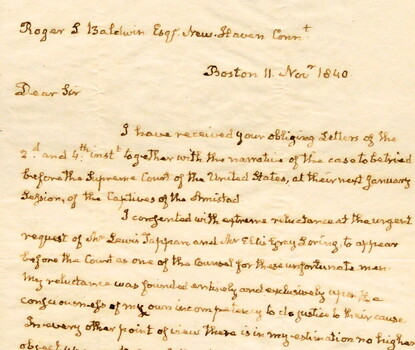 Roger S Baldwin Esqr. New-Haven Connt
Boston 11. Novr 1840.
Dear Sir
I have received your obliging Letters of the
2d. and 4th. inst. together with the narrative of the case to be tried
before the Supreme Court of the United States, at their next January
Session, of the Captives of the Amistad
I consented with extreme reluctance at the urgent
request of Mr Lewis Tappan and Mr Ellis Gray Loring, to appear
before the Court as one of the Counsel for these unfortunate men
My reluctance was founded entirely and exclusively upon the
consciousness of my own incompetency to do justice to their cause
In every other point of view there is in my estimation no higher
object